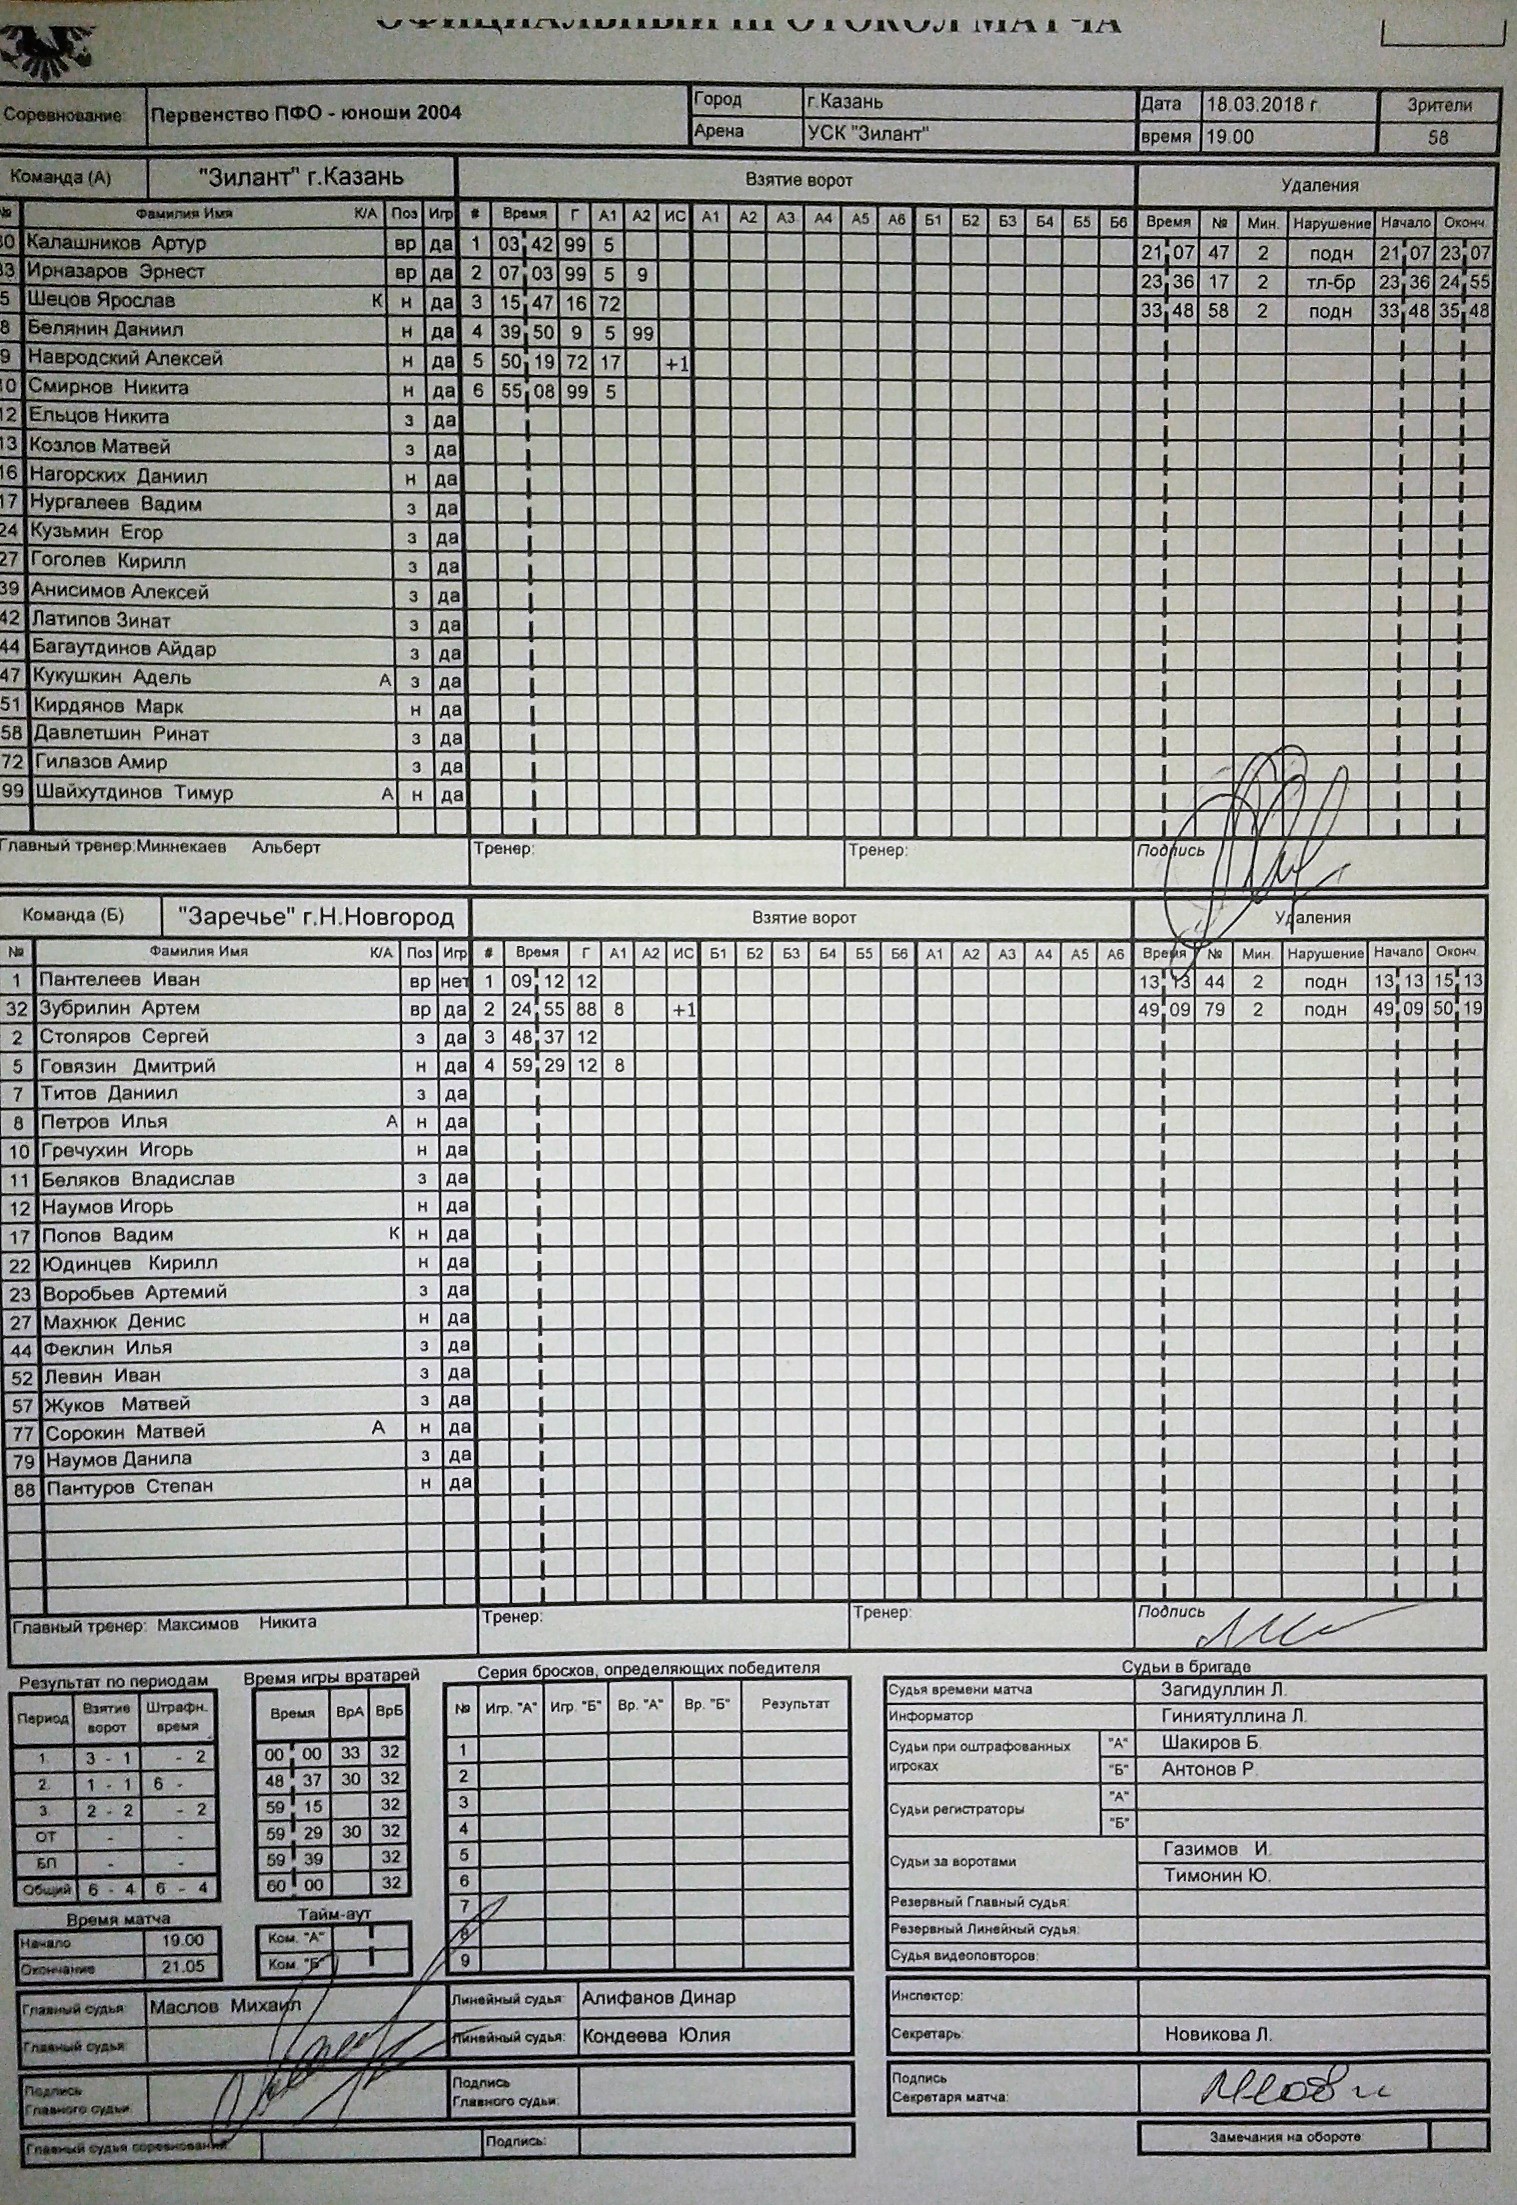 ОФИЦИАЛЬНЫЙ ПРОТОКОЛ МАТЧА
Соревнование: Первенство ПФО - юноши 2004 Город г.Казань Дата 18.03.2018 г. Зрители
Арена УСК "Зилант" время 19.00 58
Команда (А) "Зилант" г.Казань Взятие ворот Удаления
№ Фамилия Имя К/А Поз Игр # Время Г А1 А2 ИС А1 А2 А3 А4 А5 А6 Б1 Б2 Б3 Б4 Б5 Б6 Время № Мин. Нарушение Начало Оконч.
30 Калашников Артур вр да 1 03 42 99 5 21 07 47 2 подн 21 07 23 07
33 Ирназаров Эрнест вр да 2 07 03 99 5 9 23 36 17 2 тл-бр 23 36 24 55
5 Шецов Ярослав К н да 3 15 47 16 72 33 48 58 2 подн 33 48 35 48
8 Белянин Даниил н да 4 39 50 9 5 99
9 Навродский Алексей н да 5 50 19 72 17 +1
10 Смирнов Никита н да 6 55 08 99 5
12 Ельцов Никита з да
13 Козлов Матвей з да
16 Нагорских Даниил н да
17 Нургалеев Вадим з да
24 Кузьмин Егор з да
27 Гоголев Кирилл з да
39 Анисимов Алексей з да
42 Латипов Зинат з да
44 Багаутдинов Айдар з да
47 Кукушкин Адель А з да
51 Кирдянов Марк н да
58 Давлетшин Ринат з да
72 Гилазов Амир з да
99 Шайхутдинов Тимур А н да
Главный тренер: Миннекаев Альберт Тренер: Тренер: Подпись
Команда (Б) "Заречье" г.Н.Новгород Взятие ворот Удаления
№ Фамилия Имя К/А Поз Игр # Время Г А1 А2 ИС Б1 Б2 Б3 Б4 Б5 Б6 А1 А2 А3 А4 А5 А6 Время № Мин. Нарушение Начало Оконч.
1 Пантелеев Иван вр нет 1 09 12 12 13 13 44 2 подн 13 13 15 13
32 Зубрилин Артем вр да 2 24 55 88 8 +1 49 09 79 2 подн 49 09 50 19
2 Столяров Сергей з да 3 48 37 12
5 Говязин Дмитрий н да 4 59 29 12 8
7 Титов Даниил з да
8 Петров Илья А н да
10 Гречухин Игорь н да
11 Беляков Владислав з да
12 Наумов Игорь н да
17 Попов Вадим К н да
22 Юдинцев Кирилл н да
23 Воробьев Артемий з да
27 Махнюк Денис н да
44 Феклин Илья з да
52 Левин Иван з да
57 Жуков Матвей з да
77 Сорокин Матвей А н да
79 Наумов Данила з да
88 Пантуров Степан н да
Главный тренер: Максимов Никита Тренер: Тренер: Подпись
Результат по периодам Время игры вратарей Серия бросков, определяющих победителя Судьи в бригаде
Период Взятие ворот Штрафн. время
1. 3 - 1 - 2
2. 1 - 1 6 -
3. 2 - 2 - 2
ОТ - -
БП - -
Общий 6 - 4 6 - 4
Время ВрА ВрБ
00 00 33 32
48 37 30 32
59 15 32
59 29 30 32
59 39 32
60 00 32
№ Игр. "А" Игр. "Б" Вр. "А" Вр. "Б" Результат
1
2
3
4
5
6
7
8
9
Судья времени матча Загидуллин Л.
Информатор Гиниятуллина Л.
Судьи при оштрафованных игроках "А" Шакиров Б.
"Б" Антонов Р.
Судьи регистраторы "А"
"Б"
Судьи за воротами Газимов И.
Тимонин Ю.
Резервный Главный судья:
Резервный Линейный судья:
Судья видеоповторов:
Время матча Тайм-аут
Начало 19.00 Ком. "А"
Окончание 21.05 Ком. "Б"
Главный судья: Маслов Михаил Линейный судья: Алифанов Динар Инспектор:
Главный судья: Линейный судья: Кондеева Юлия Секретарь: Новикова Л.
Подпись Главного судьи Подпись Главного судьи: Подпись Секретаря матча:
Главный судья соревнований: Подпись: Замечания на обороте: